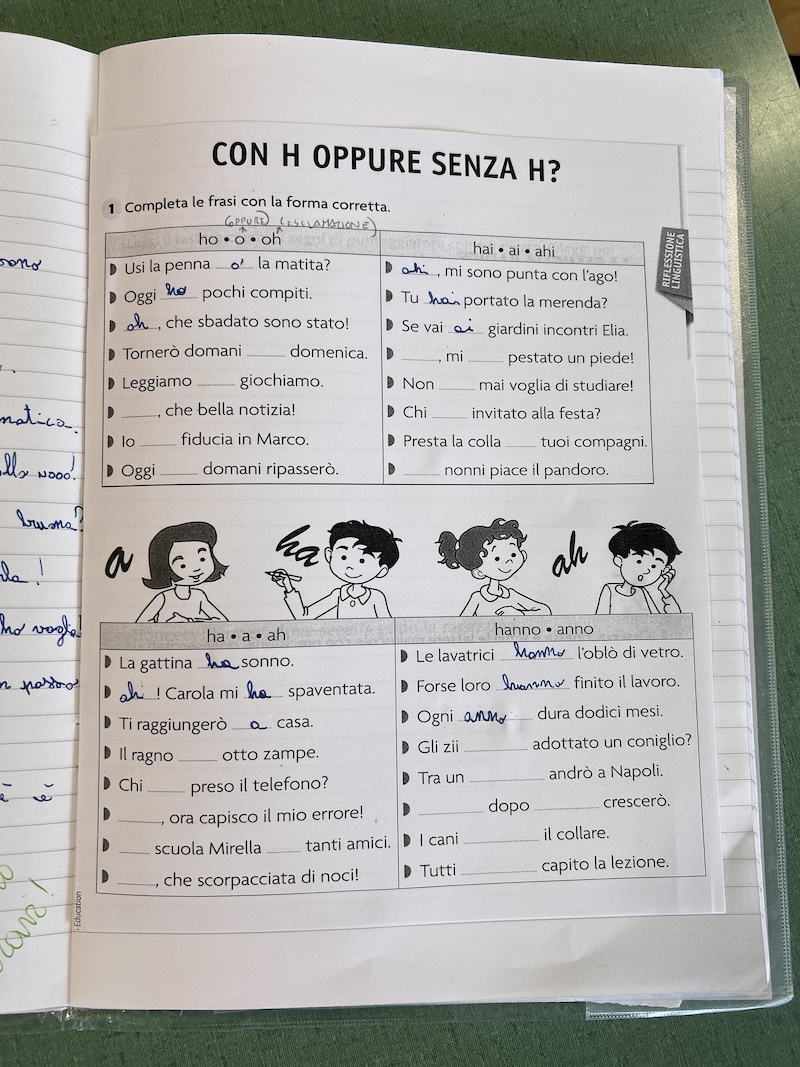 CON H OPPURE SENZA H?
1 Completa le frasi con la forma corretta.
(OPPURE) (ESCLAMAZIONE)
ho • o • oh
Usi la penna o la matita?
Oggi ho pochi compiti.
oh, che sbadato sono stato!
Tornerò domani ______ domenica.
Leggiamo ______ giochiamo.
______, che bella notizia!
Io ______ fiducia in Marco.
Oggi ______ domani ripasserò.
hai • ai • ahi
ahi, mi sono punta con l'ago!
Tu hai portato la merenda?
Se vai ai giardini incontri Elia.
______, mi ______ pestato un piede!
Non ______ mai voglia di studiare!
Chi ______ invitato alla festa?
Presta la colla ______ tuoi compagni.
______ nonni piace il pandoro.
RIFLESSIONE
LINGUISTICA
a
ha
ah
ha • a • ah
La gattina ha sonno.
ah! Carola mi ha spaventata.
Ti raggiungerò a casa.
Il ragno ______ otto zampe.
Chi ______ preso il telefono?
______, ora capisco il mio errore!
______ scuola Mirella ______ tanti amici.
______, che scorpacciata di noci!
hanno • anno
Le lavatrici hanno l'oblò di vetro.
Forse loro hanno finito il lavoro.
Ogni anno dura dodici mesi.
Gli zii ______ adottato un coniglio?
Tra un ______ andrò a Napoli.
______ dopo ______ crescerò.
I cani ______ il collare.
Tutti ______ capito la lezione.
Education
sono
nooo!
bruna?
ho voglia
passo
è è